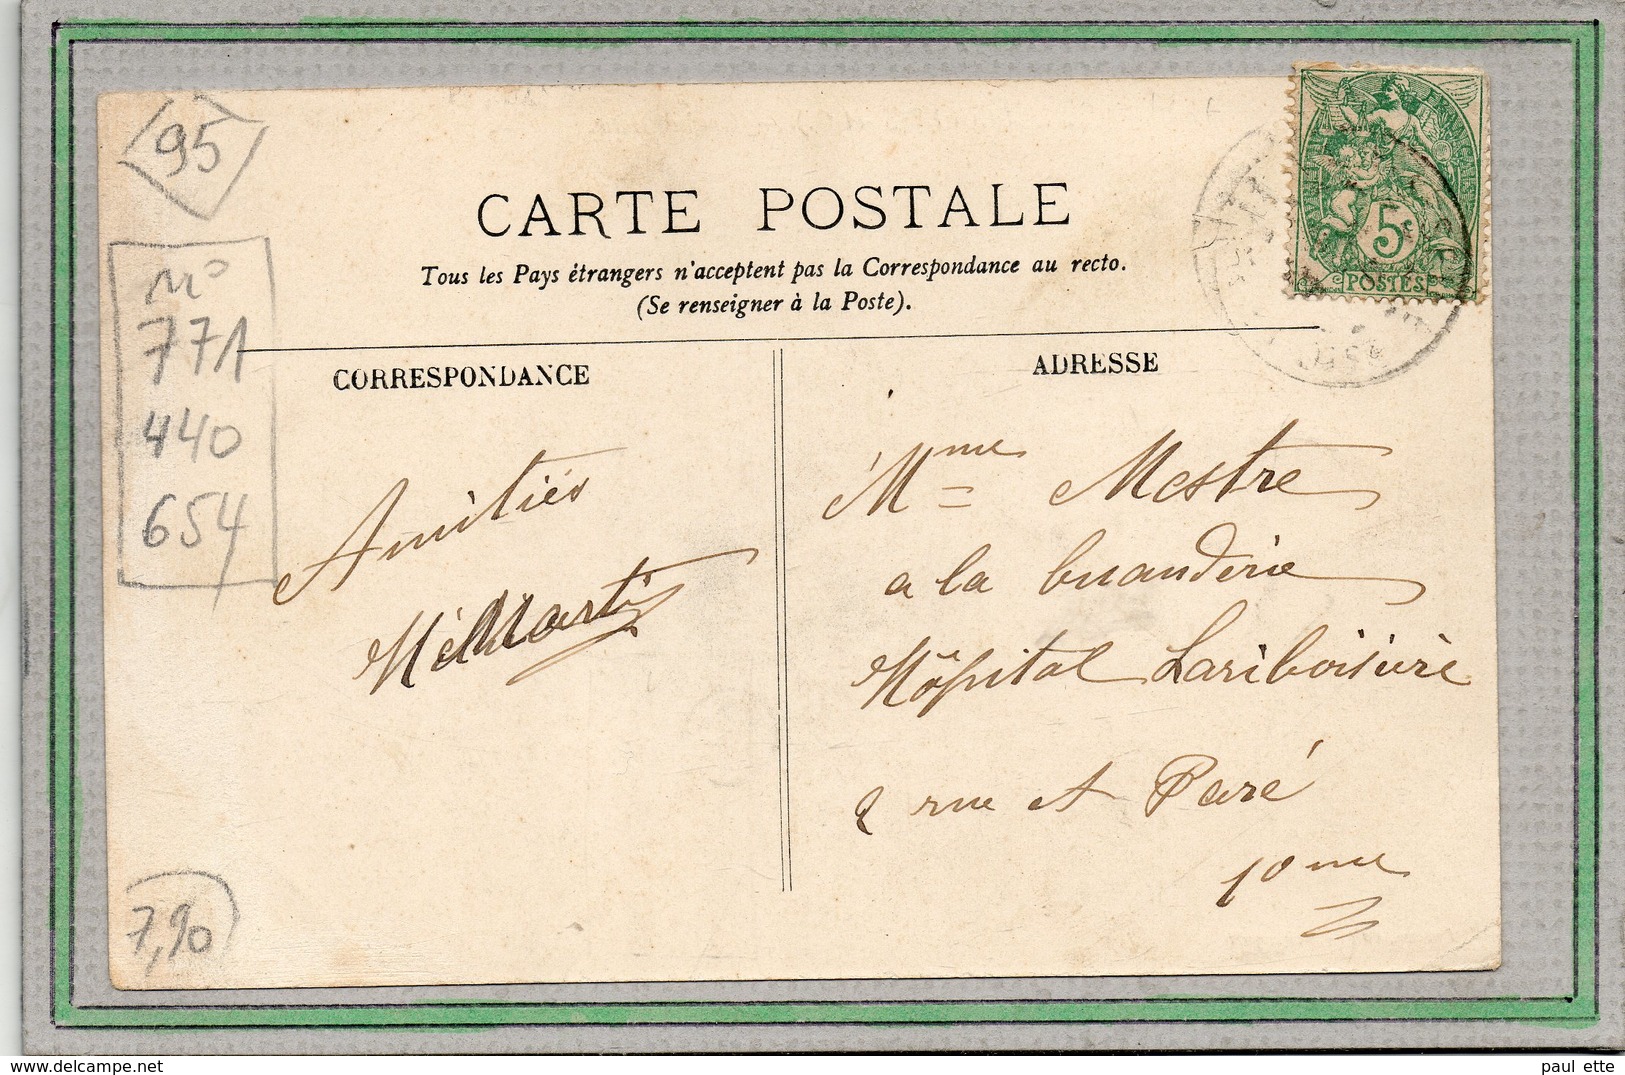 95
CARTE POSTALE
Tous les Pays étrangers n'acceptent pas la Correspondance au recto.
(Se renseigner à la Poste).
5c
POSTES
No
771
440
654
CORRESPONDANCE
Amitiés
7,90
ADRESSE
Mme Mestre
a la buanderie
Hôpital Lariboisière
2 rue A Paré
10me
paul ette